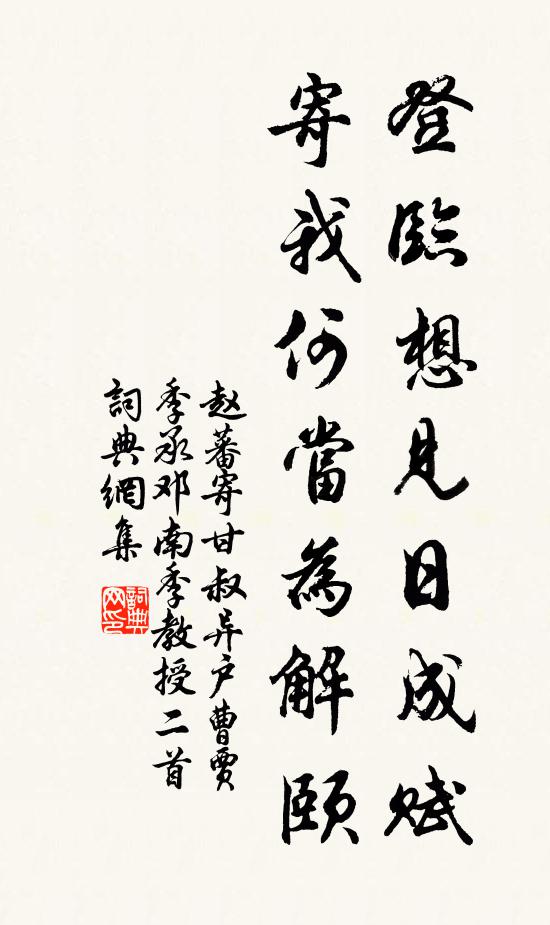 登臨想見日成賦
寄我何當為解頤
赵蕃寄甘叔异户曹贾
季承邓南季教授二首
詞典網集
詞典
网印